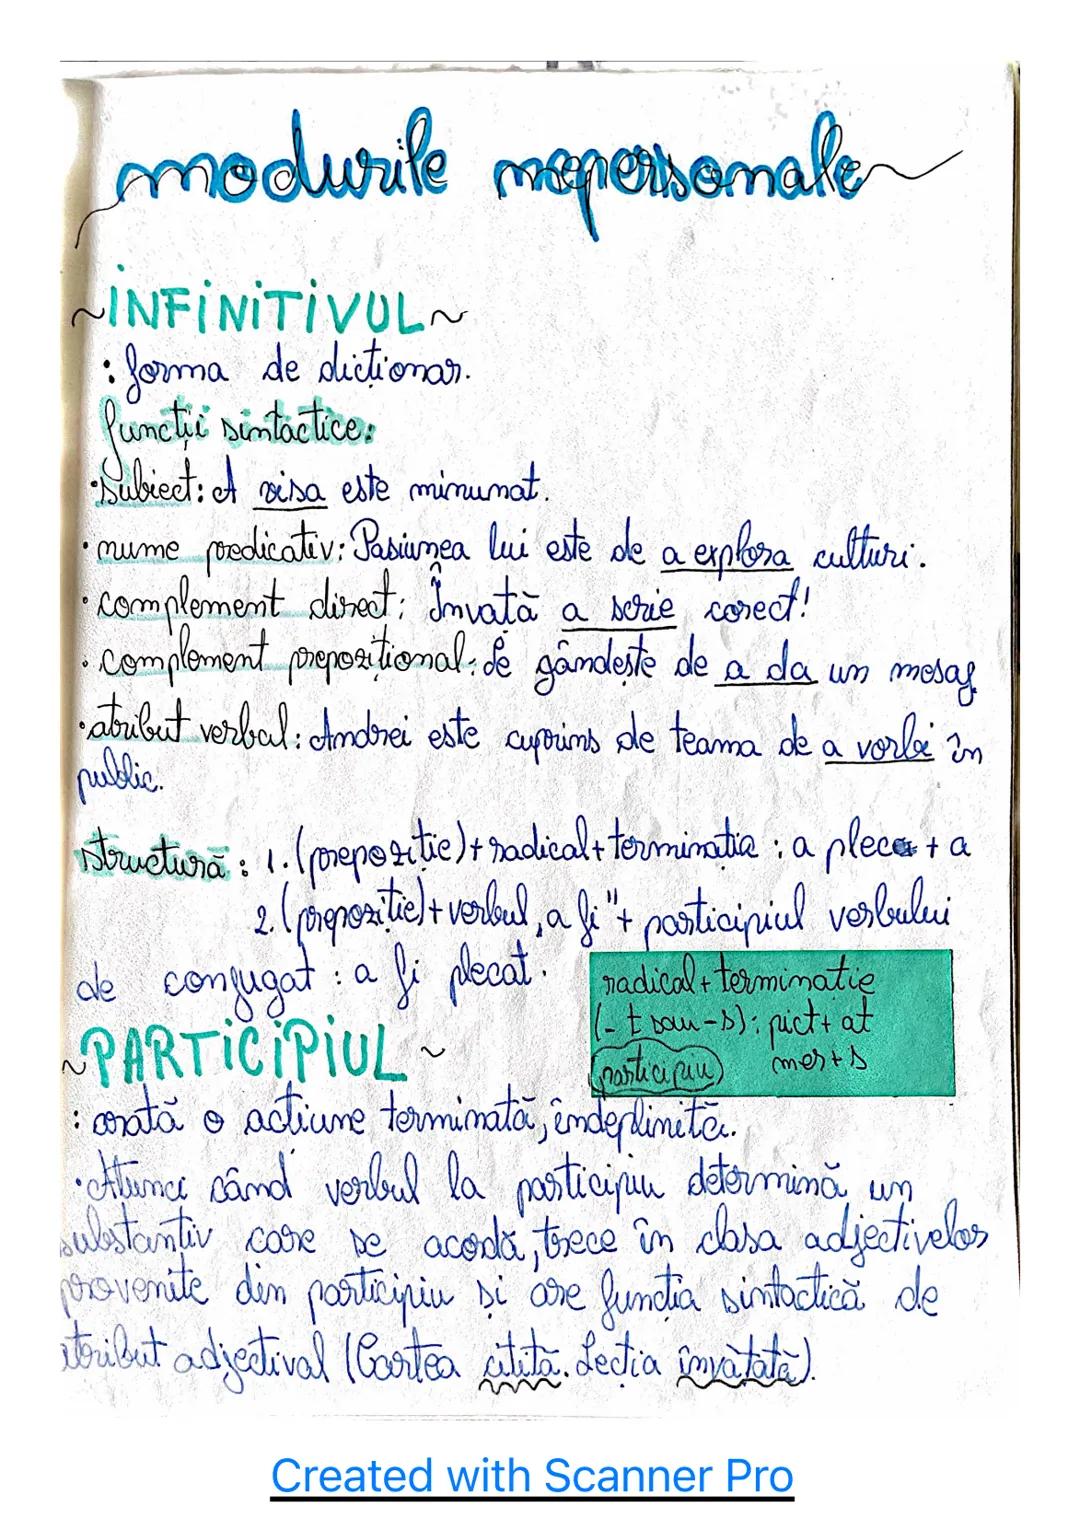 modurile nepersonale
~INFINITIVUL~
: forma de dicționar.
funcții sintactice:
·Subiect: A visa este minunat.
·nume predicativ: Pasiunea lui este de a explora culturi.
·complement direct: Învață a scrie corect!
·complement prepozițional: Se gândește de a da un mesaj
·atribut verbal: Andrei este cuprins de teama de a vorbi în
public.
structură: 1. (prepoziție)+radical+terminația: a pleca + a
2. (prepoziție)+verbul „a fi"+ participiul verbului
de conjugat: a fi plecat.
radical+terminație
(-t sau -s): pict+at
(participiu) mer+s
~PARTICIPIUL~
: arată o acțiune terminată, îndeplinită.
·Atunci când verbul la participiu determină un
substantiv care se acodă, trece în clasa adjectivelor
provenite din participiu și are funcția sintactică de
atribut adjectival (Cartea citită. Lecția învățată).
Created with Scanner Pro